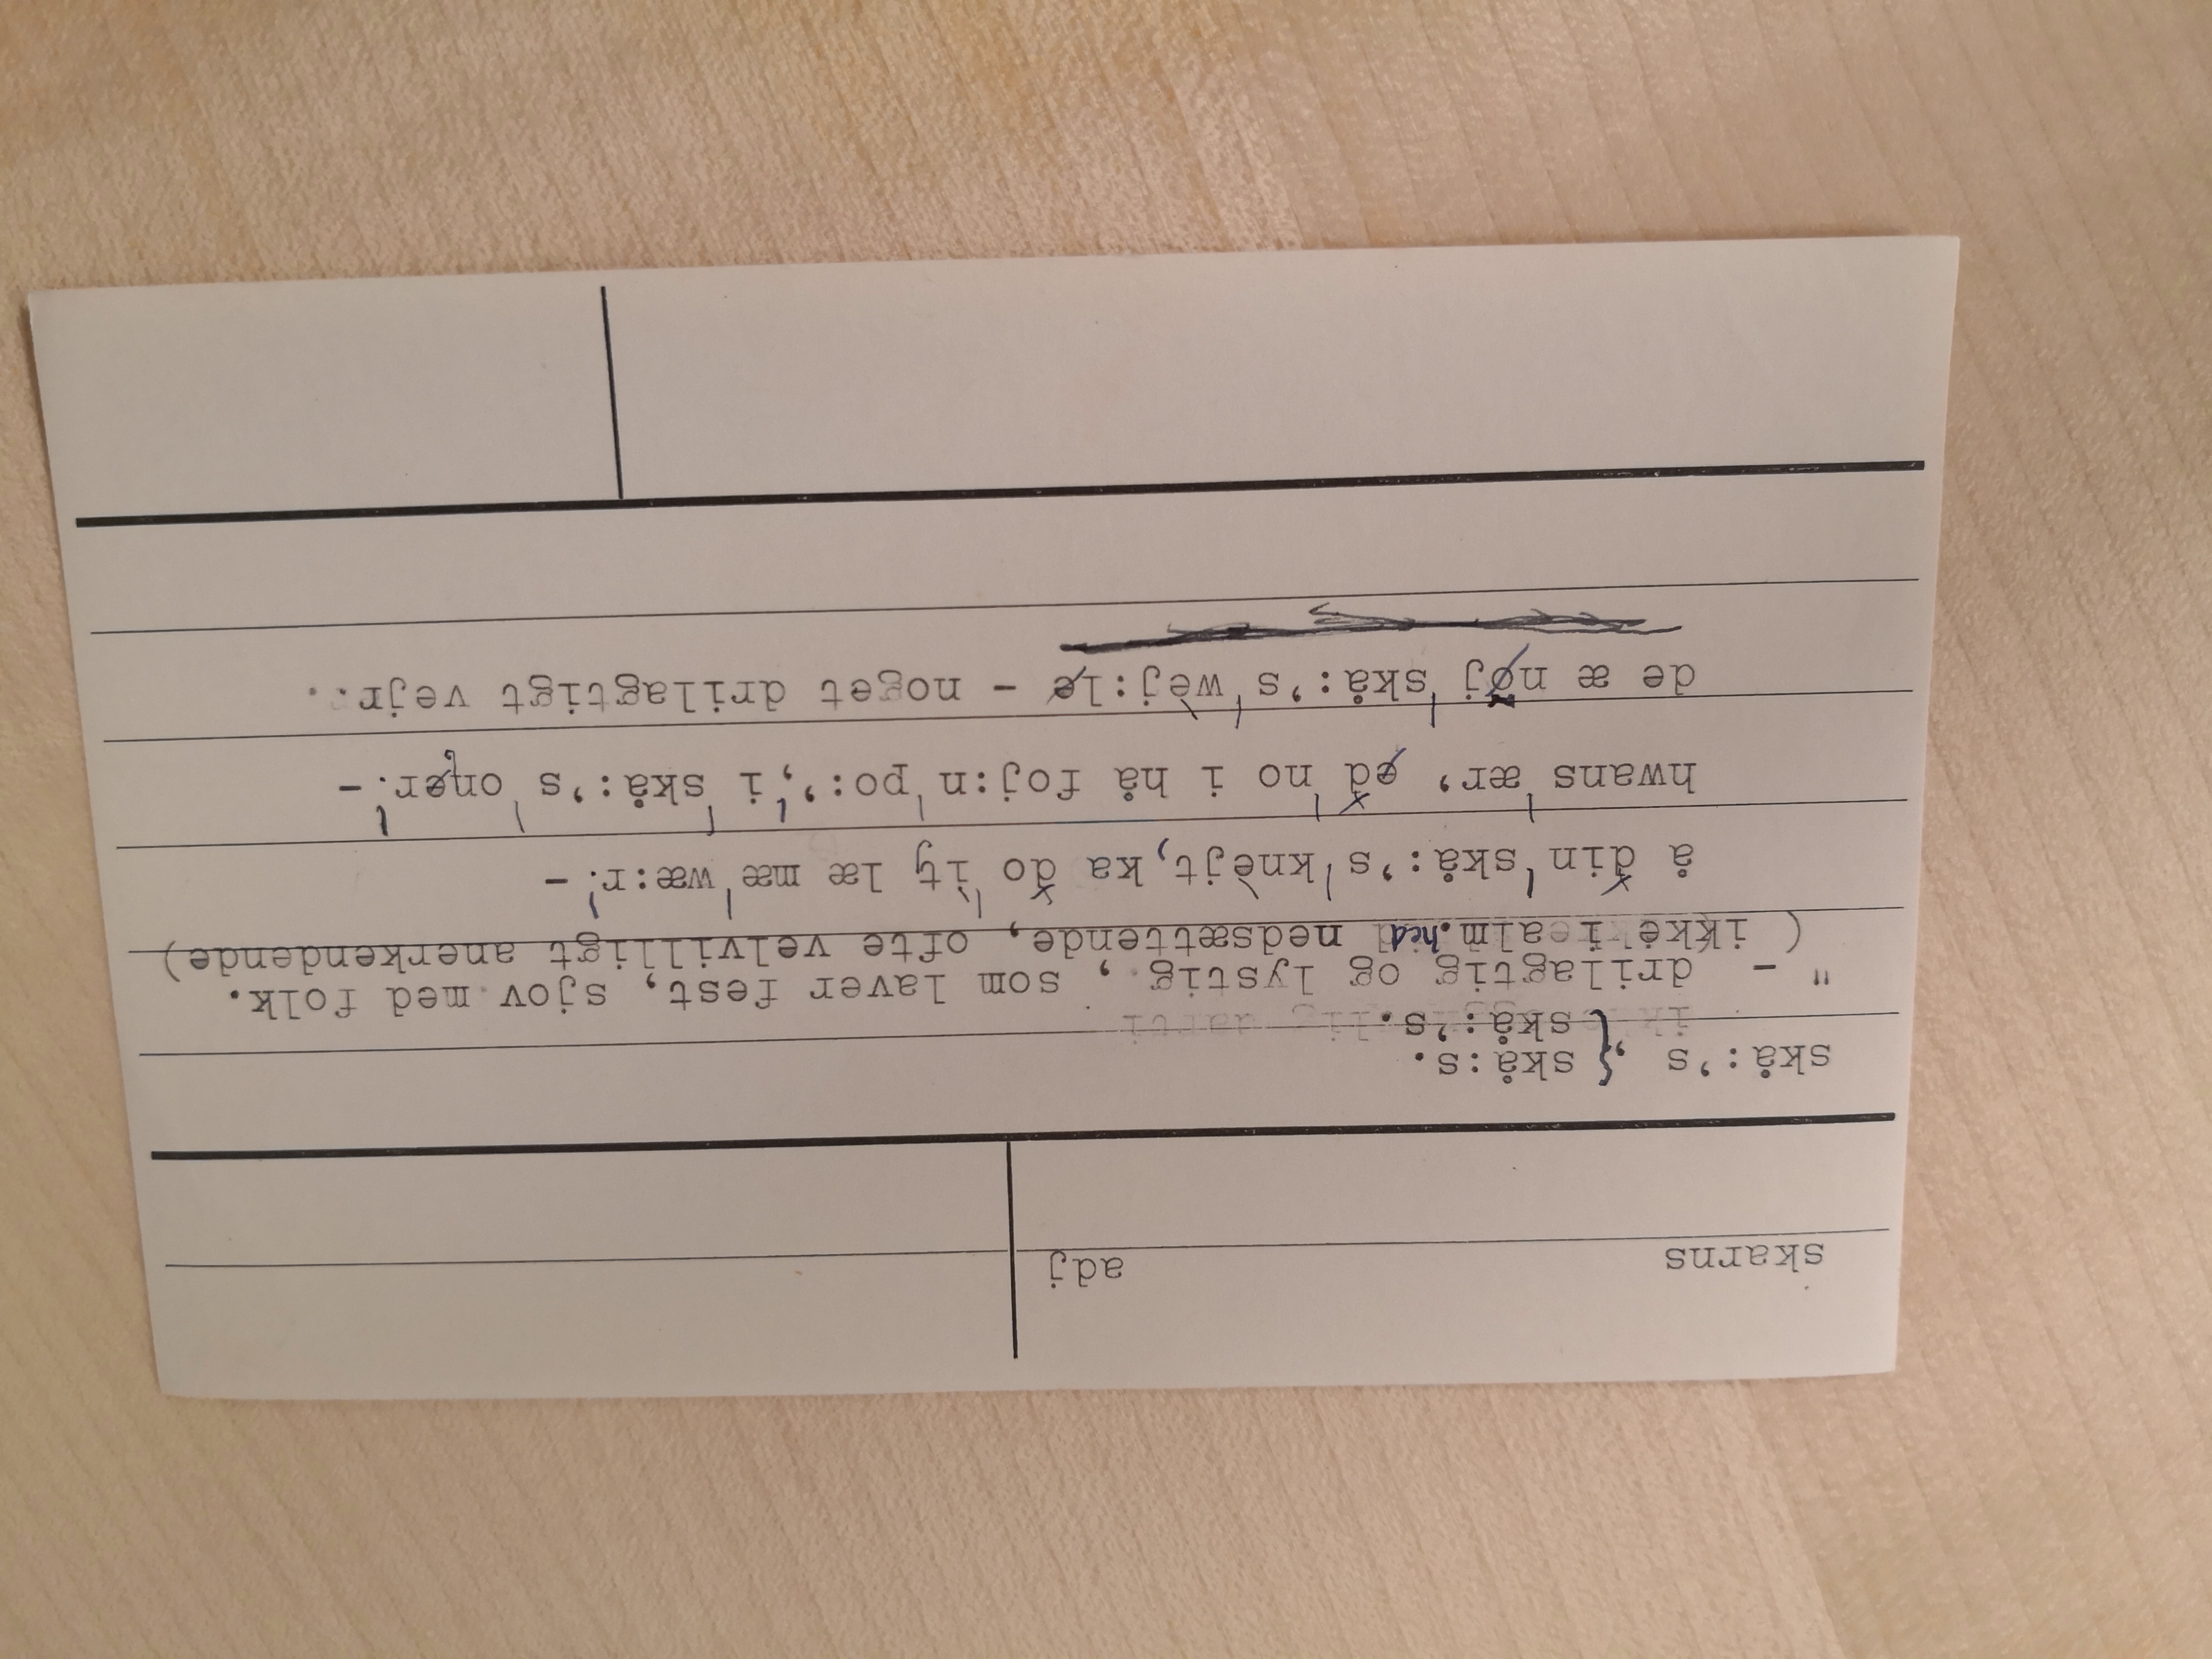 skarns adj
skå:'s , { skå:s.
skå:'s.
" - drilagtig og lystig , som laver fest, sjov med folk.
( ikke i alm.hed nedsættende, ofte velvilligt anerkendende)
å din 'skå:'s 'knèjt, ka do 'ìt læ mæ 'wæ:r.' -
hwans 'ær, ed 'no i hå foj:n 'po:', 'i 'skå:'s 'oŋer.' -
de æ nøj 'skå:'s 'wèj:le - noget drilagtigt vejr..